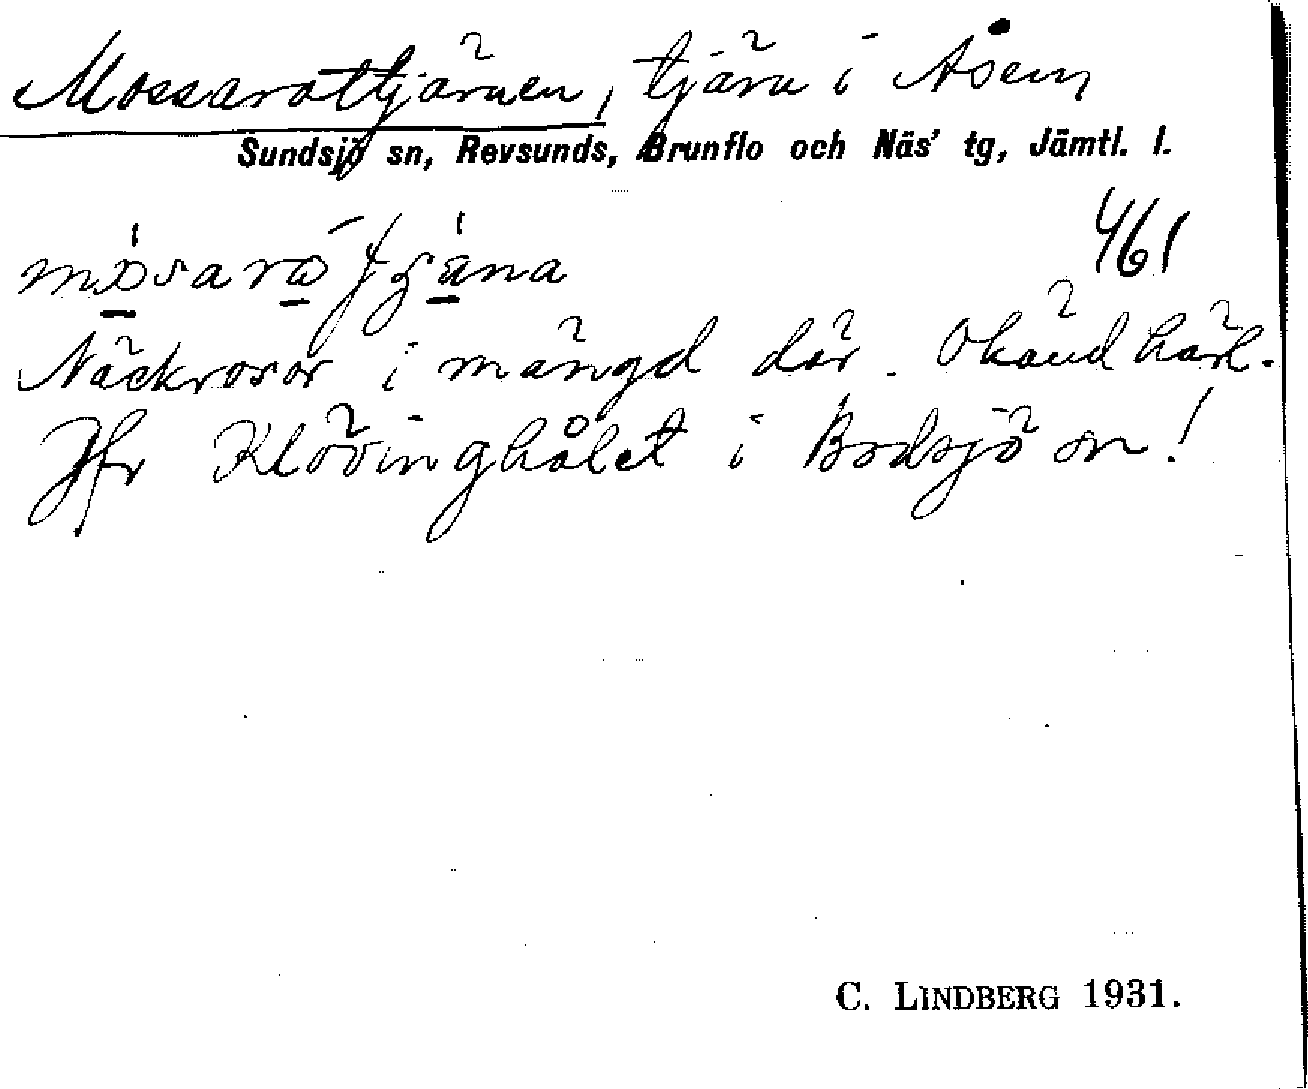 Mossarottjärnen, tjärn i Åsen,
Sundsjö sn, Revsunds, Brunflo och Näs' tg, Jämtl. l.
461
Näckrosor i mängd där. Okänd härl.
Jfr Klövinghålet i Bodsjö sn!
C. LINDBERG 1931.